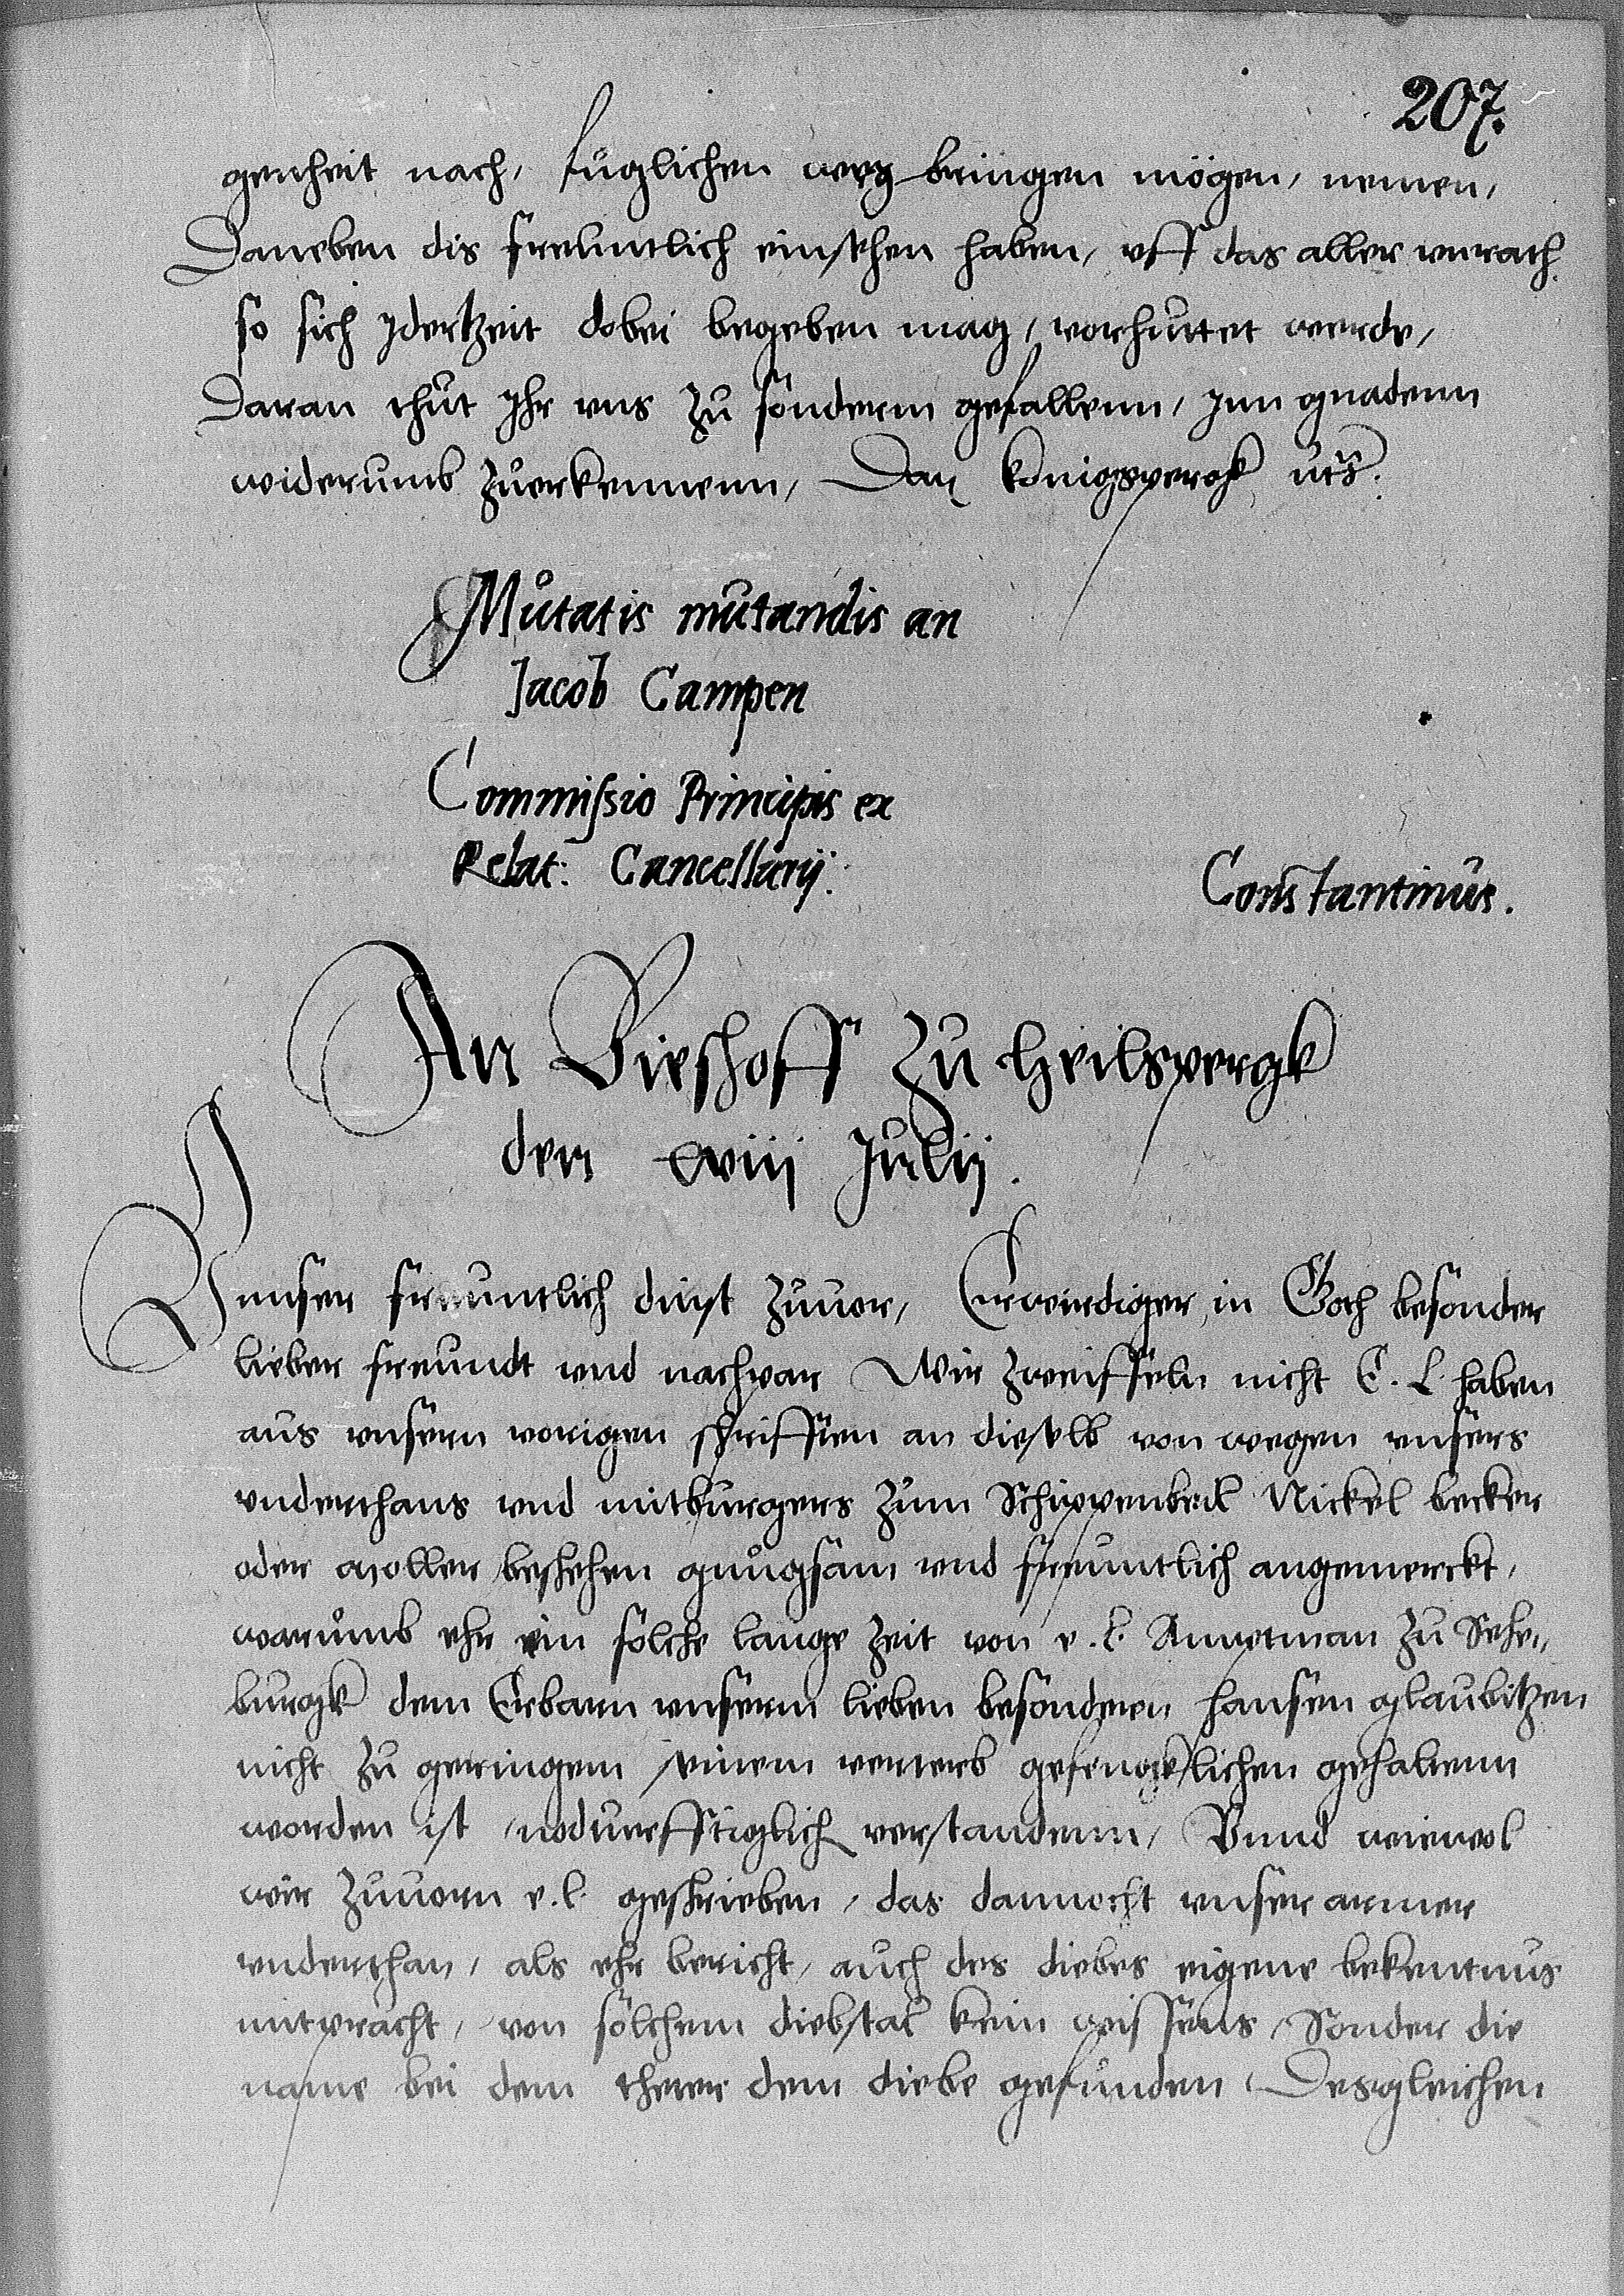 207.
genheit nach, fuglichen weg bringen mögen, nemen,
Daneben dis freuntlich einsehen haben, vff das aller vnrath
so sich yderzeit dobei begeben mag, vorhuttet werde,
Daran thut Ihr vns zu sonderm gefallenn, Inn gnadenn
widerumb zuerkennenn, Dat Konigspergk uts.
Mutatis mutandis an
Jacob Campen
Commissio Principis ex
Relat: Cancellarij.
Constantinus.
An Bieshoff zu Heilspergk
den xviij Julij.
Vnnser freuntlich dinst zuuor, Erwirdiger, in Goth besonder
lieber freundt vnd nachpar Wir zweiffeln nicht E. L. haben
aus vnsern vorigen schrifften an dieselb von wegen vnsers
vnderthans vnd mitburgers zum Schippenbeil Nickel becker
oder moller beschehen gnugsam vnd freuntlich angemerckt,
warumb ehr ein solche lange zeit von e. l. Amptman zu Sehe„
burgk dem Erbarn vnserm lieben besondern Hansen glaubitzen
nicht zu geringem seinem vorterb gefengklichen gehaltenn
worden ist, nodurfftiglich verstandenn, Vnnd wiewol
wir zuuorn e. l. geschrieben, das dannocht vnser armer
vnderthan, als ehr bericht, auch des diebes eigene bekentnus
mitpracht, von solchem diebstal kein wissens, Sonder die
name bei dem theter dem diebe gefunden, Desgleichen